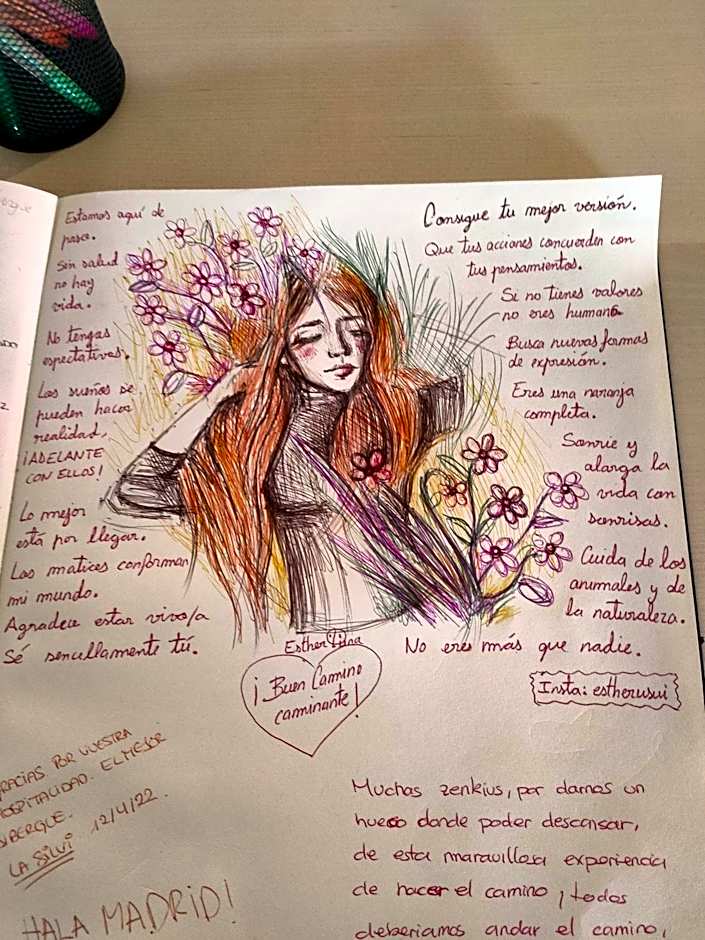 Estamos aquí de
paso.
Sin salud
no hay
vida.
No tengas
espectativas.
Los sueños se
pueden hacer
realidad,
¡ADELANTE
CON ELLOS!
Lo mejor
está por llegar.
Los matices conforman
mi mundo.
Agradece estar vivo/a
Sé sencillamente tú.
Consigue tu mejor versión.
Que tus acciones concuerden con
tus pensamientos.
Si no tienes valores
no eres humano
Busca nuevas formas
de expresión.
Eres una naranja
completa.
Sonríe y
alarga la
vida con
sonrisas.
Cuida de los
animales y de
la naturaleza.
No eres más que nadie.
Esther
¡Buen Camino
caminante!
Insta: estherusui
GRACIAS POR VUESTRA
HOSPITALIDAD. EL MEJOR
ALBERGUE.
LA SILVI 12/4/22.
HALA MADRID!
Muchas zenkius, por darnos un
hueco donde poder descansar,
de esta maravillosa experiencia
de hacer el camino, todos
deberiamos andar el camino,